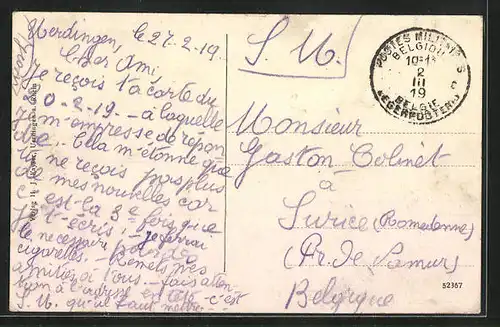 Uerdingen, le 27-2-19
Cher Ami,
Je reçois ta carte du
0-2-19 - à laquelle
m'empresse de répon
Cela m'étonne que
ne reçois pas plus
de mes nouvelles car
c'est la 3e fois que
j'écris,
le nécessaire
cigarettes.
amitiés à tous - fais atten-
tion à l'adresse c'est
S. M. qu'il faut mettre.
S. M.
POSTES MILITAIRES
BELGIQUE
2
III
19
BELGIE
LEGERPOSTERIJ
Monsieur
Gaston Colinet
à
Surice (Romedenne)
(Pr. de Namur)
Belgique
52367